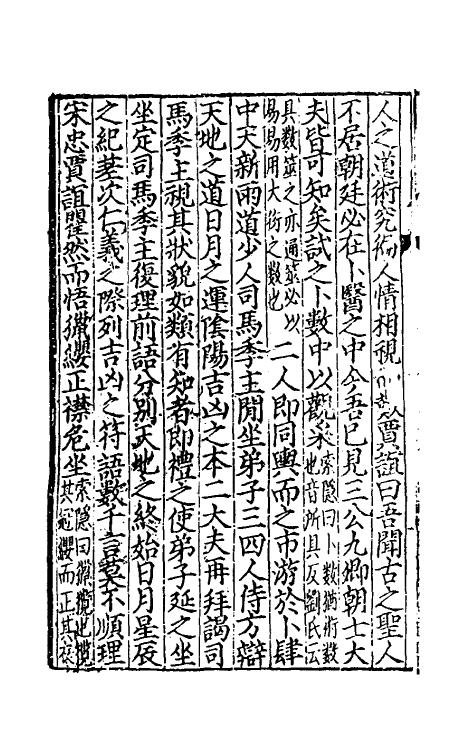 人之道術究徧人情相視而歎賈誼曰吾聞古之聖人
不居朝廷必在卜醫之中今吾已見三公九卿朝士大
夫皆可知矣試之卜數中以觀采索隱曰卜數猶術數也音所具反劉氏云
具數筮之亦通筮必以易易用大衍之數也二人即同輿而之市游於卜肆
中天新雨道少人司馬季主閒坐弟子三四人侍方辯
天地之道日月之運隂陽吉凶之本二大夫再拜謁司
馬季主視其狀貌如類有知者即禮之使弟子延之坐
坐定司馬季主復理前語分别天地之終始日月星辰
之紀差次仁義之際列吉凶之符語數千言莫不順理
宋忠賈誼瞿然而悟獵纓正襟危坐索隱曰獵攬也攬其冠纓而正其衣